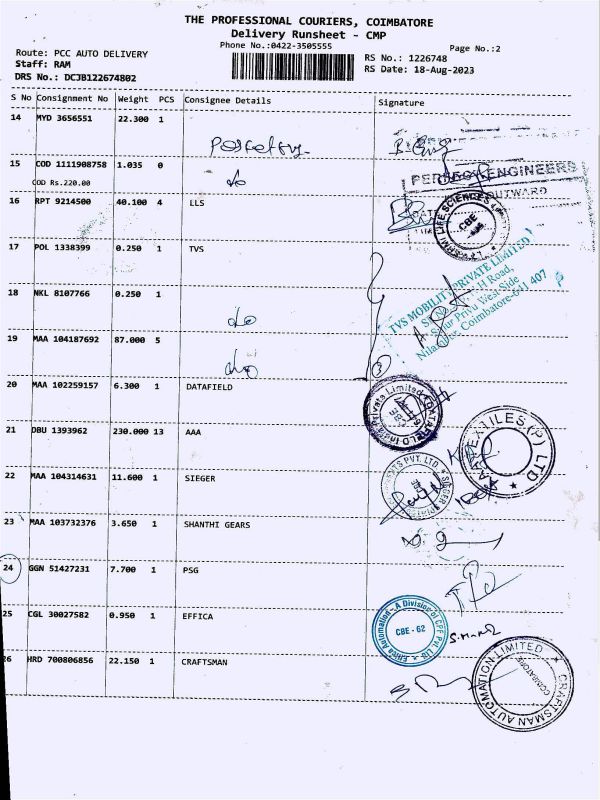 THE PROFESSIONAL COURIERS, COIMBATORE
Delivery Runsheet - CMP
Phone No.:0422-3505555
Page No.:2
Route: PCC AUTO DELIVERY
Staff: RAM
DRS No.: DCJB122674802
RS No.: 1226748
RS Date: 18-Aug-2023
S No Consignment No Weight PCS Consignee Details Signature
14 MYD 3656551 22.300 1
15 COD 1111908758 1.035 0 do
COD Rs.220.00
ENGINEERS
OUTWARD
16 RPT 9214500 40.100 4 LLS
LIFE SCIENCES
CBE
17 POL 1338399 0.250 1 TVS
TVS MOBILITY PRIVATE LIMITED
H Road,
Privu West Side
Coimbatore-641 407
18 NKL 8107766 0.250 1
do
19 MAA 104187692 87.000 5
do
20 MAA 102259157 6.300 1 DATAFIELD
DATAFIELD India Private Limited
21 DBU 1393962 230.000 13 AAA
TEXTILES (P) LTD
22 MAA 104314631 11.600 1 SIEGER
PVT. LTD. SIEGER
23 MAA 103732376 3.650 1 SHANTHI GEARS
24 GGN 51427231 7.700 1 PSG
25 CGL 30027582 0.950 1 EFFICA
Effica Automation - A Division of CPF PVT. LTD.
CBE - 62
26 HRD 700806856 22.150 1 CRAFTSMAN
CRAFTSMAN AUTOMATION LIMITED
COIMBATORE